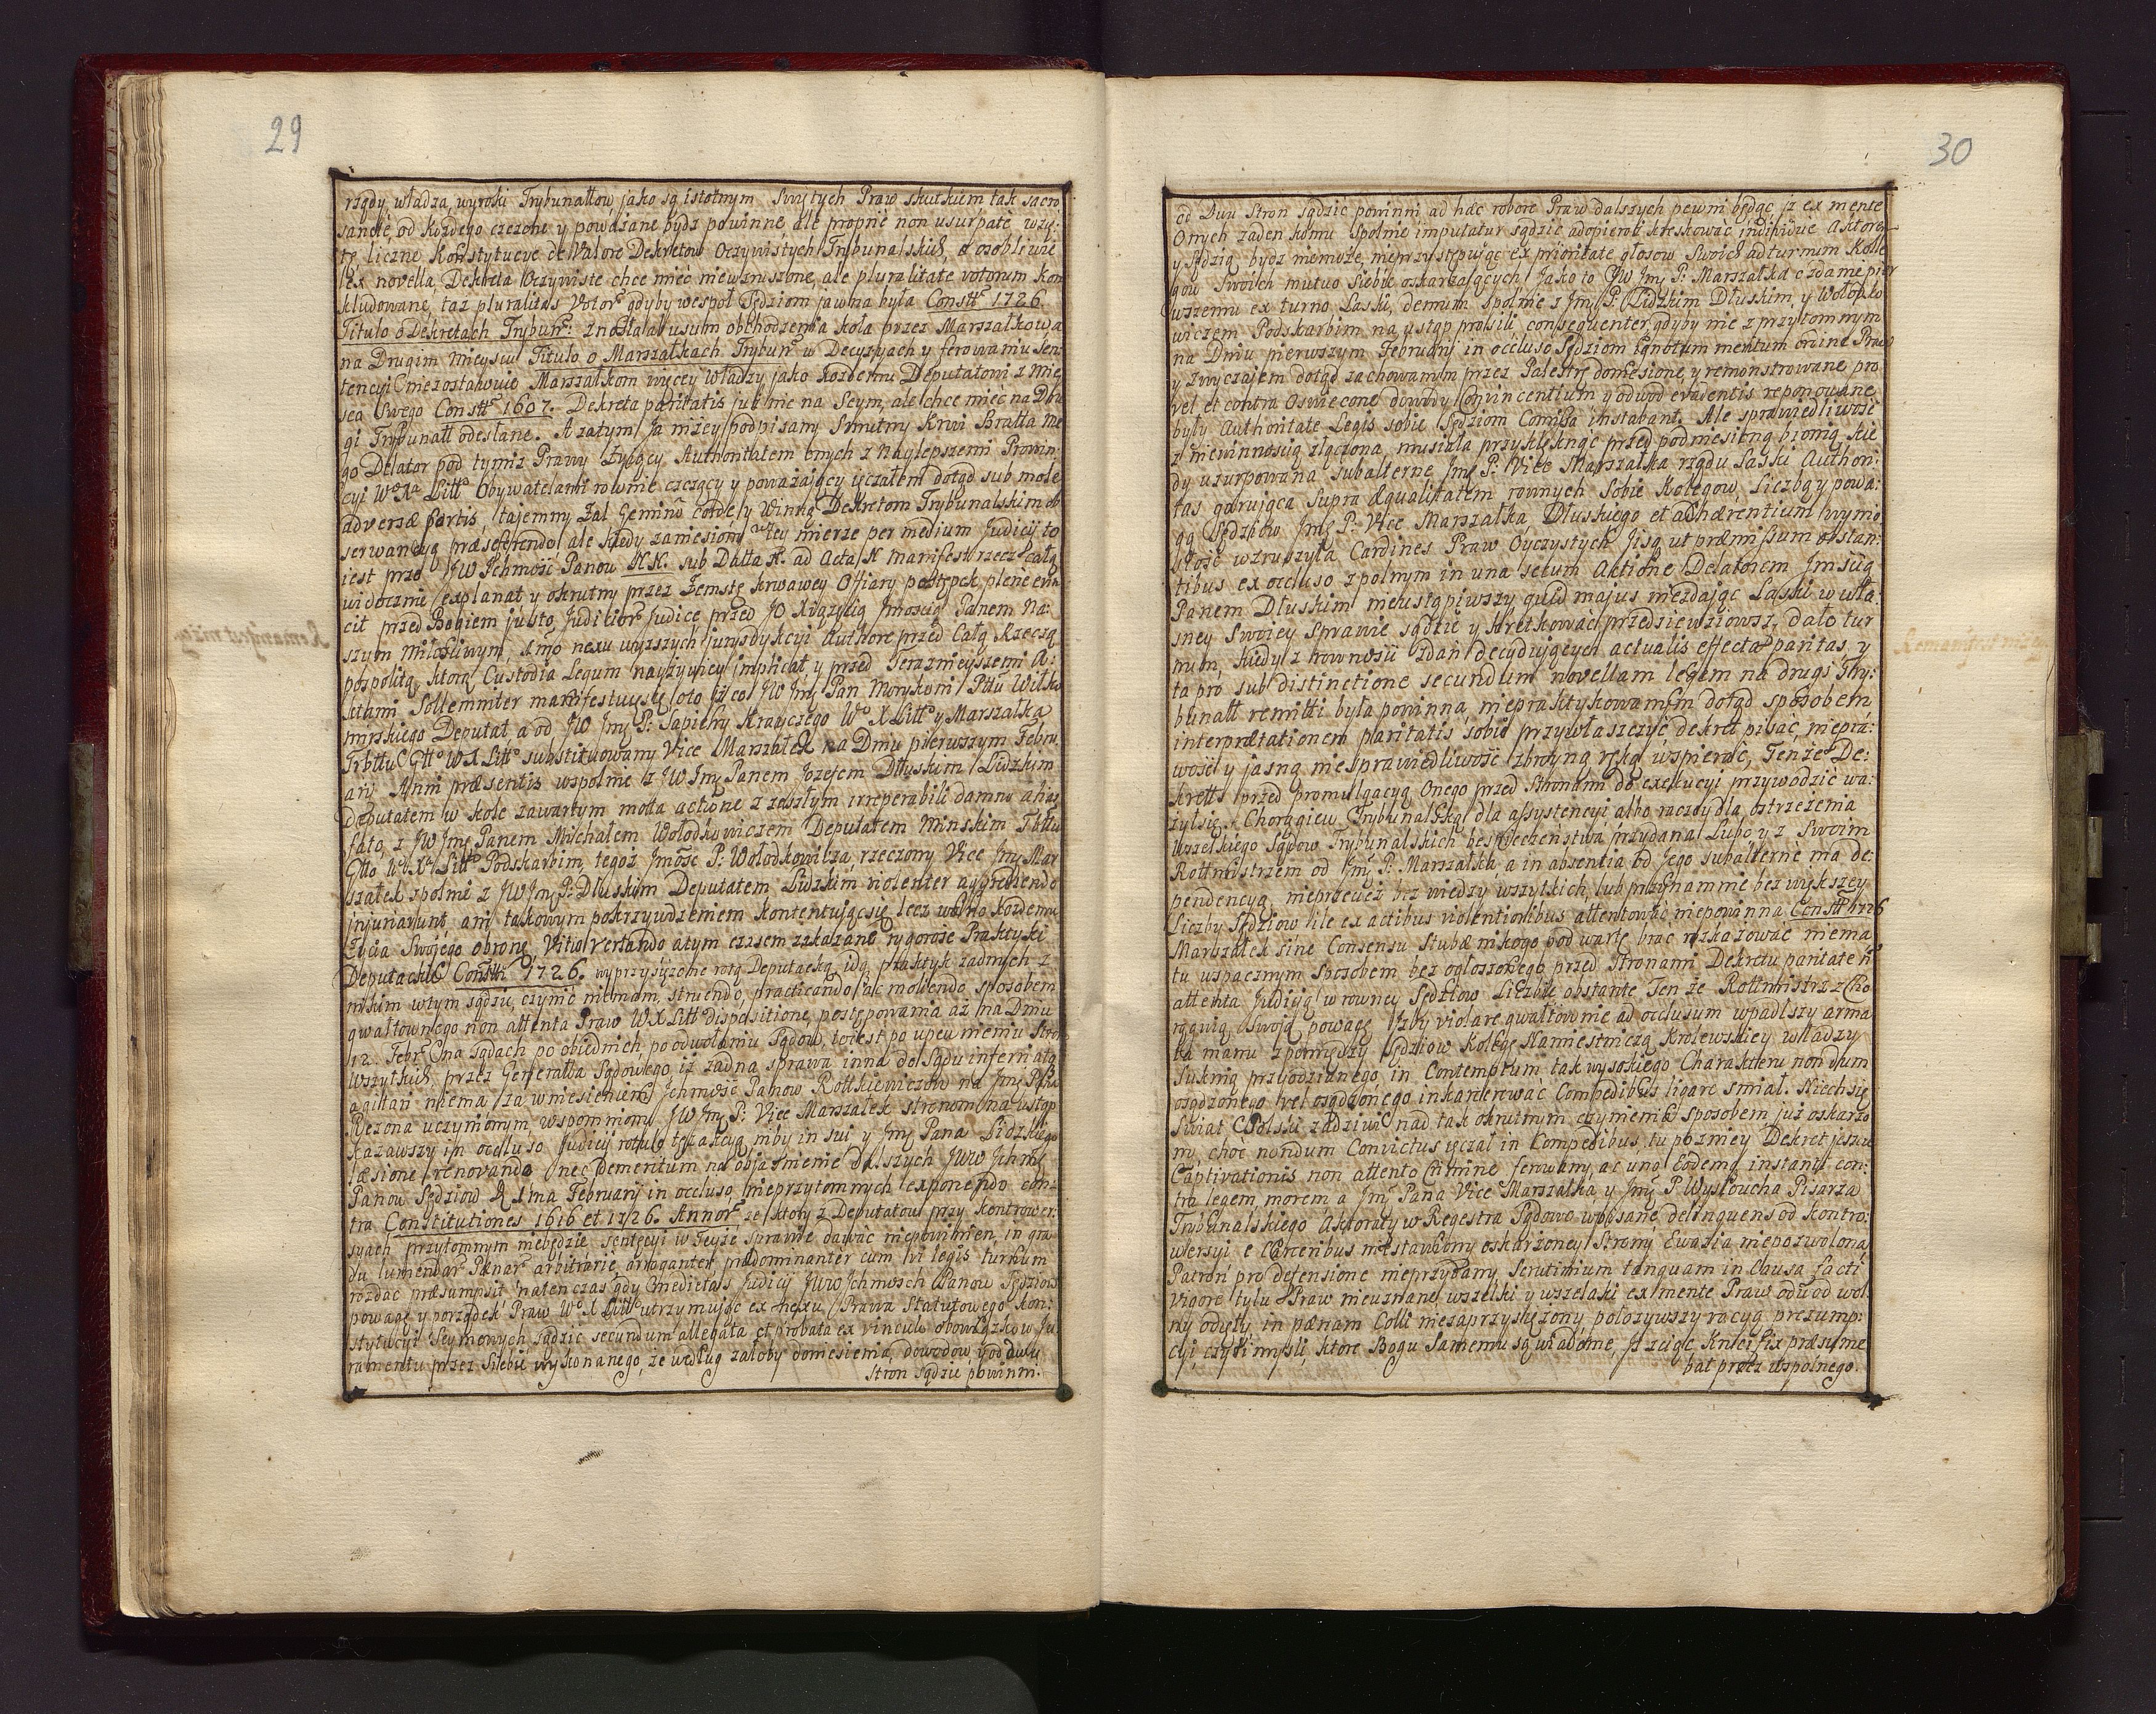 29
rządy, władza, wyroki Trybunałłow, jako są istotnym Swiętych Praw skutkiem tak sacro
sancte, od Każdego czczone y poważane bydz powinne, ale proprie non usurpate wzy:
te, liczne Konstytucye de Valore Dekretow Oczywistych Trybunalskich, a osobliwie
lex novella, Dekreta Oczywiste chce mieć niewzruszone, ale pluralitate votorum kon
kludowane, taz pluralitas Votor gdyby wespoł Sędziom jawna była Constt 1726.
Titulo o Dekretach Trybun: zniosła abusum obchodzenia koła przez Marszałkow a
na Drugim mieyscu Titulo o Marszałkach Trybun w Decyzyach y ferowaniu Sen
tencyi niezostawuie Marszałkom więcey władzy jako Kożdemu Deputatowi z miey
sca Swego Constt 1607. Dekreta paritatis już nie na Seym, ale chce mieć na Dru
gi Trybunałł odesłane. A zatym Ja nizey podpisany Smutny Krwi Bratta me
go Delator pod tymiz Prawy Żyiący Authoritatem onych z Naylepszemi Prowin:
cyi W X Litt Obywatelami rownie czczący y poważający ięczałem dotąd sub mole
adversæ sortis, tajemny Żal Gemino corde, y Winną Dekretom Trybunalskim ob
serwancyą præseferendo, ale kiedy zaniesiony w tey mierze per medium Judicij to
iest prze JW Ichmość Panow N.N. sub Datta N. ad Acta N manifest rzecz całą
widocznie explanat y okrutny przez Zemstę krwawey Ofiary postępek, plene evin
cit przed Bogiem justo Judicior Judice przed JO Xiążęcią Jmością Panem Na:
szym Miłościwym, Smo nexu wyzszych jurysdykcyi Authore przed Całą Rzeczą
pospolitą, ktorą Custodia Legum nayzywiey implicat y przed Terazniejszemi A:
ktami Sollemniter manifestuyę się oto: iż co JW Jmć Pan Morykoni Pttu Wiłko
mirskiego Deputat a od JW Jmć P: Sapiehy Krayczego W X Litt y Marszałka
Trbttu Gtto W X Litt substituowany Vice Marszałek na Dniu pierwszym Febru
arii Anni præsentis wspolnie z JW Jmć Panem Jozefem Dłuskim Lidzkim
Deputatem w kole zawartym mota actione z zeszłym irreperabili damno alias
fato, z JW Jmć Panem Michałem Wołodkowiczem Deputatem Minskim Tbttu
Gtto W X Litt Podskarbim, tegoż Jmość P: Wołodkowicza, rzeczony Vice Jmć Mar
szałek spolnie z JW Jmć P: Dłuskim Deputatem Lidzkim violenter aggrediendo
injuriarunt, ani takowym pokrzywdzeniem kontentuiąc się, lecz wolno Kożdemu
Życia Swojego obronę, Vitio vertando, a tym czasem zakazane rygoroze Praktyki
Deputackie Constt 1726. wyprzysięzone rotą Deputacką, idą, praktyk zadnych z
nikim w tym sądzie, czynić niemam, struendo, practicando, ac moliendo sposobem
gwałtownego non attenta Praw W X Litt dispositione, postępowania aż na Dniu
12. Febr na sądach po obiednich, po odwołaniu Sądow, to iest po upewnieniu Stron
Wszytkich, przez Generała Sądowego, iż żadna sprawa inna do Sądu inferri ata
agitari niema, za wniesieniem Ichmość Panow Rottkiewiczow na Jmć Pana
Pyezona uczynionym, wspomniony JW Jmć P: Vice Marszałek stronom na ustęp
kazawszy in occluso Judicij rotulo te zakcyą, niby in sui y Jmć Pana Lidzkiego
læsione renovanda nec dementum na objaśnienie dalszych JWW Ichmć
Panow Sędziow d 1ma Februarij in occluso nieprzytomnych exponendo con:
tra Constitutiones 1616 et 1726. Annor ze ktory z Deputatow przy kontrower:
syach przytomnym niebędzie, sentęcyi w teyże sprawie dawać niepowinien, in gra
du luendar Pænar arbitrarie, arroganter, prædominanter cum tri legis turnum
rozdać præsumpsit, natenczas gdy medietas Judicij JWW Ichmościch Panow Sędziow
powagę y porządek Praw W X Litt utrzymując ex nexu Prawa Statutowego Kon:
stytucyi Seymowych sądzić secundum allegata et probata ex vinculo obowiązkow Ju
ramentu przez Siebie wykonanego, że według załoby doniesienia, dowodow y od dwu
Stron sądzić powinni.
30
od Dwu Stron sądzić powinni ad hæc robore Praw dalszych pewni będąc, iż ex mente
Onych żaden komu spolnie imputatur sądzić a dopiero kreskować individue Aktorem
y Sędzią bydz niemoże, nieprzystępując ex prioritate głosow Swoich ad turnum Kolle
gow Swoich mutuo Siebie oskarzających Jako to JW Jmć P: Marszałka oddanie pier
wszemu ex turno Laski, demum spolnie z Jmć P: Lidzkim Dłuskim, y Wołodko
wiczem Podskarbim na ustęp prosili, consequenter, gdyby nie z przytomnym
na Dniu pierwszym Februarij in occluso Sędziom ignotum meritum ordine Praw
y Zwyczajem dotąd zachowanym przez Palestrę doniesione, y remonstrowane pro
vel et contra Oswiecone dowody Convincentium y odwod evadentis reponowane
były Authoritate Legis sobie Sędziom Comissa instabant. Ale sprawiedliwość
z niewinnością złączona, musiała przyklęknąć przed podniesioną bronią, kie
dy uzurpowana subalterne Jmć P: Vice Marszałka rządu Laski Authori:
tas gorująca Supra Æqualitatem rownych Sobie Kolegow, Liczbą y powa:
gą Sędziow Jmć P: Vice Marszałka, Dłuskiego et adhærentium wynio
słość wzruszyła Cardines Praw Oyczystych Jisq ut præmissum obstan:
tibus ex occluso z polnym in una secum Actione Delatorem Jmścią
Panem Dłuskim nieustąpiwszy quid majus niezdając Laski w wła:
sney Swoiey Sprawie sądzić y kreskować przedsięwziowszy, dało tur
num, kiedy z rownosci zdań decydujących actualis effecta paritas, y
ta pro sub distinctione secundum novellam legem na drugi Try:
bunałł remitti była powinna, niepraktykowanym dotąd sposobem
interpretationem paritatis sobie przywłaszczyć dekret pisać, niepra:
wość y jasną niesprawiedliwość zbroyną ręką wspierać, Tenże De:
krett przed promulgacyą Onego przed Stronami do exekucyi przywodzić wa:
zyłsię. Chorągiew Trybunalską dla assystencyi albo raczey dla ostrzezenia
Wszelkiego Sądow Trybunalskich bespieczeństwa przydana Lubo y z Swoim
Rottmistrzem od Jmć P: Marszałka a in absentia od Jego subalterne ma de:
pendencyą, nieprzecież bez wiedzy wszytkich, lub przynamnie bez wykszey
Liczby Sędziow lite ex actibus violentionibus attentować niepowinna Constt 1726
Marszałek sine Consensu Stubæ nikogo pod wartę brać rozkazować niema
tu uspacznym sposobem bez ogłoszonego przed Stronami Dekretu paritate n
attenta Judicia w rowney Sędziow Liczbie obstante Ten że Rottmistrz z Cho
rągwią Swoją powagę Izby violare gwałtownie ad occlusum wpadłszy arma
ta manu z pomiędzy Sędziow Kolegę Namiestniczą Krolewskiey władzy
Suknią przyodzianego in Contemptum tak wysokiego Charakteru non dum
osądzonego vel osądzonego inkarcerować Compedibus ligare smiał. Niech się
Świat Polski zadziwi nad tak okrutnym czynienia sposobem, już oskarzo
ny, choć nondum Convictus ięczał in Compedibus, tu pozniey Dekret jeszcze
Captivationis non attento Crimine ferowany, ac uno Eodemq instanti con:
tra legem, morem, a Jmć Pana Vice Marszałka y Jmć P Wysłoucha Pisarza
Trybunalskiego Aktoraty w Regestra Sądowe wpisane, delinquens od kontro:
wersyi e Carceribus niestawiony oskarżoney Strony Ewazia niepozwolona
Patron pro defensione nieprzydany, Scrutinium tanquam in Causa facti
vigore tylu Praw nieuznane wszelki y wszelaki ex mente Praw odwod wol
ny odięty in pænam Colli niezaprzysiężony położywszy racyą prezump:
cyi, czyli myśli, ktore Bogu Samemu są wiadome, Jż czigc Krucifix præsume
bat przez uspolnego.